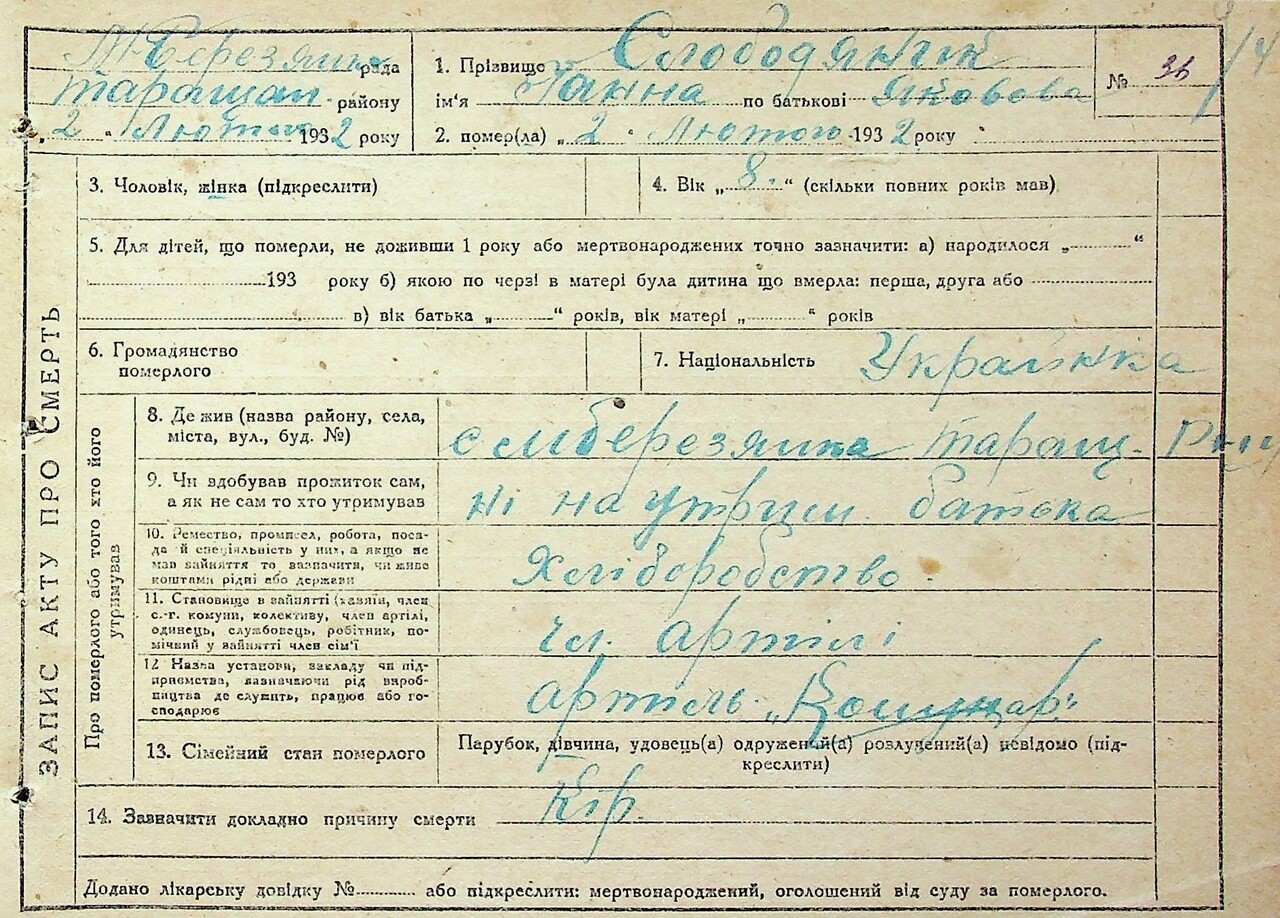 М Березянка рада
Таращан. району
„2“ Лютого 1932 року
1. Прізвище Слободяник
ім'я Ганна по батькові Яковева
2. помер(ла) „2“ Лютого 1932 року
№ 36
14
ЗАПИС АКТУ ПРО СМЕРТЬ
3. Чоловік, жінка (підкреслити)
4. Вік „8.“ (скільки повних років мав)
5. Для дітей, що померли, не доживши 1 року або мертвонароджених точно зазначити: а) народилося „ “
193 року б) якою по черзі в матері була дитина що вмерла: перша, друга або
в) вік батька „ “ років, вік матері „ “ років
6. Громадянство
померлого
7. Національність Українка
Про померлого або того хто його
утримував
8. Де жив (назва району, села,
міста, вул., буд. №)
с мберезянка таращ. Р-ну
9. Чи здобував прожиток сам,
а як не сам то хто утримував
ні на утрим. батька
10. Ремество, промисел, робота, поса-
да й спеціяльність у них, а якщо не
мав зайняття то зазначити, чи живе
коштами рідні або держави
Хліборобство.
11. Становище в зайнятті (хазяїн, член
с.-г. комуни, колективу, член артілі,
одинець, службовець, робітник, по-
мічний у зайнятті член сім'ї
чл. артілі
12 Назва установи, закладу чи під-
приємства, зазначаючи рід вироб-
ництва де служить, працює або го-
сподарює
артіль
13. Сімейний стан померлого
Парубок, дівчина, удовець(а) одружений(а) розлучений(а) невідомо (під-
креслити)
14. Зазначити докладно причину смерти Кір.
Додано лікарську довідку № або підкреслити: мертвонароджений, оголошений від суду за померлого.